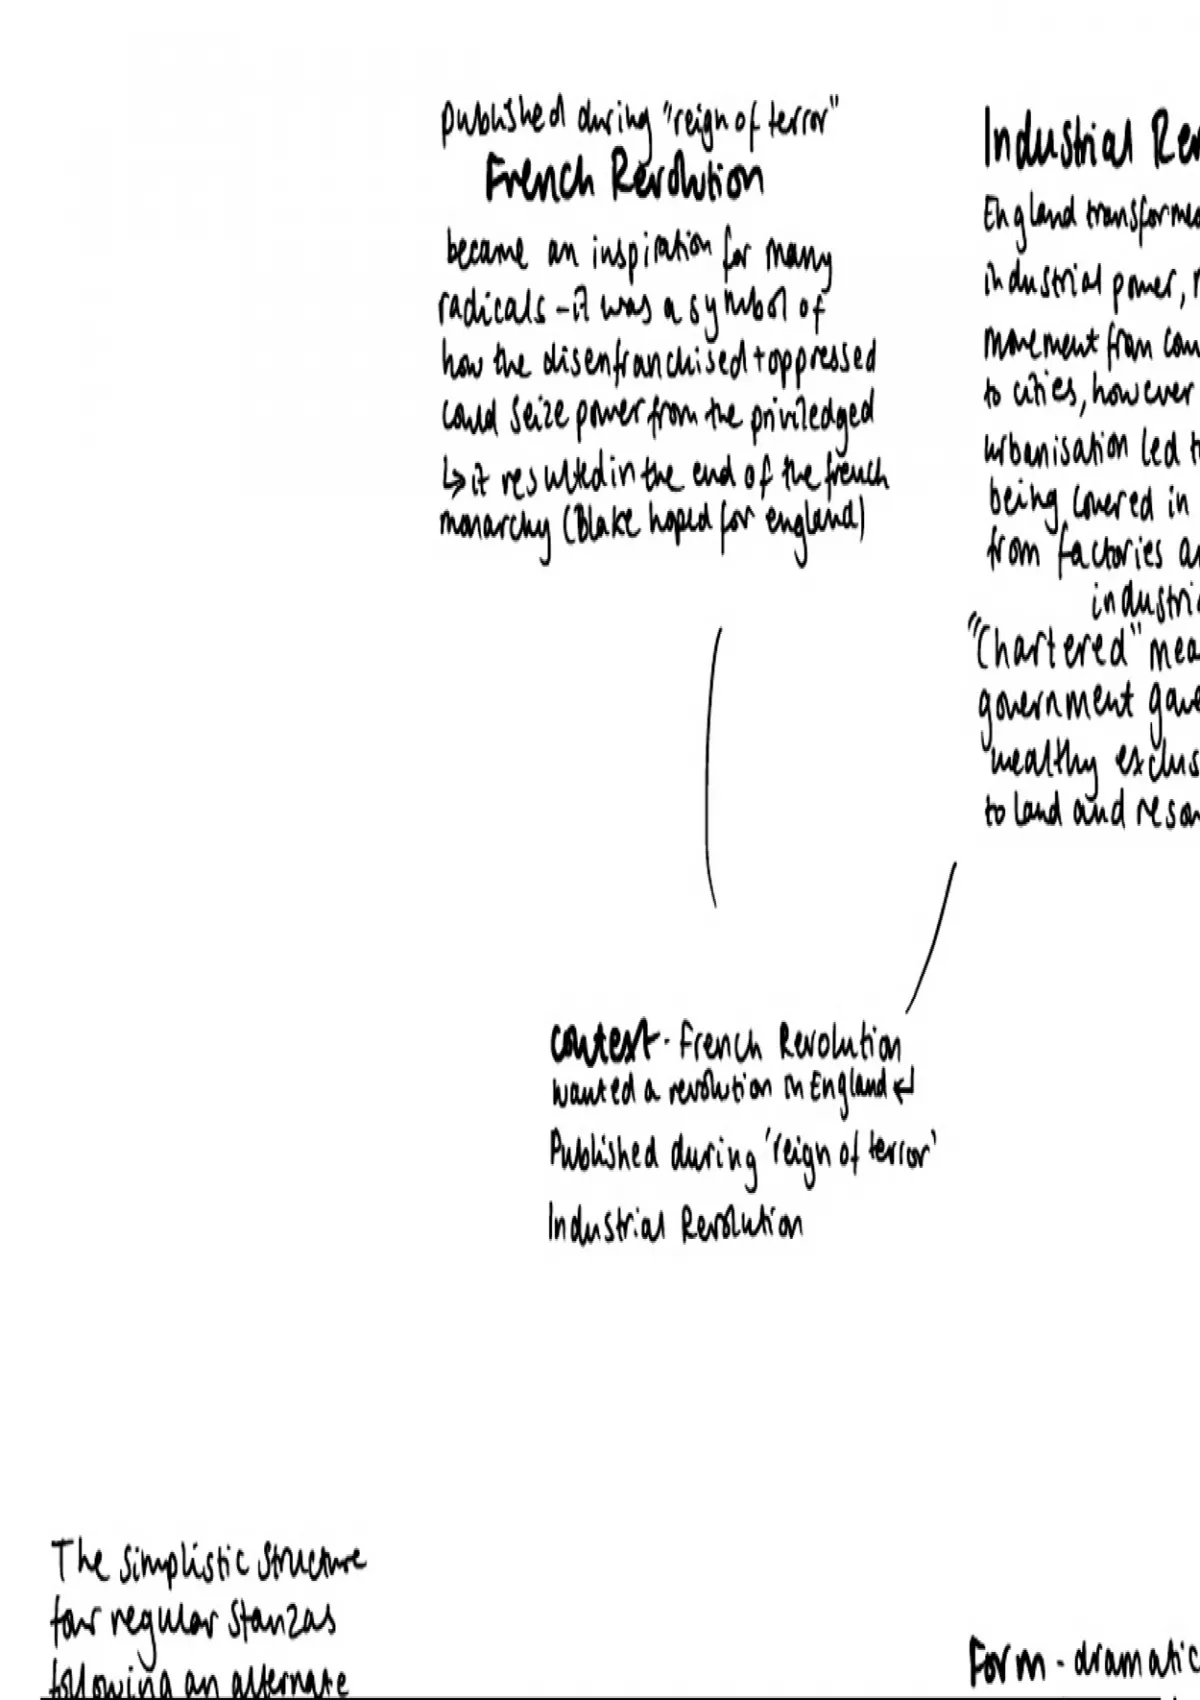 published during "reign of terror"
French Revolution
became an inspiration for many
radicals - it was a symbol of
how the disenfranchised + oppressed
could seize power from the priviledged
↳ it resulted in the end of the french
monarchy (Blake hoped for england)
Industrial Re
England transforme
industrial power,
movement from cou
to cities, however
urbanisation led t
being covered in
from factories a
industri
"Chartered" mea
government gave
wealthy exclus
to land and reso
context - French Revolution
wanted a revolution in England ↵
Published during 'reign of terror'
Industrial Revolution
The simplistic structure
four regular stanzas
following an alternate
Form - dramatic